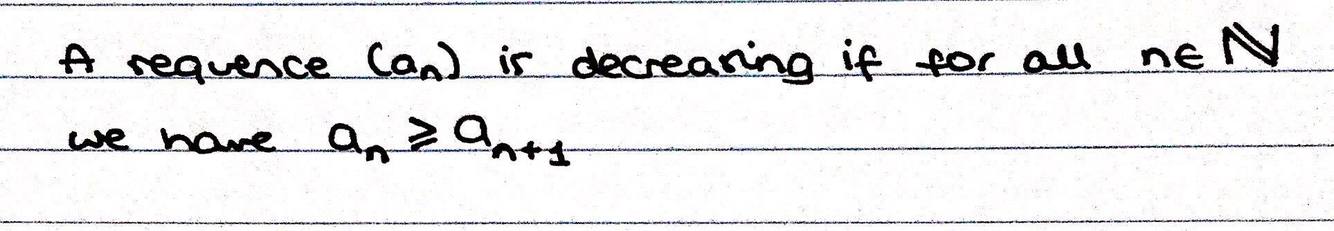 A sequence (aₙ) is decreasing if for all n∈ ℕ
we have aₙ ⩾ aₙ₊₁